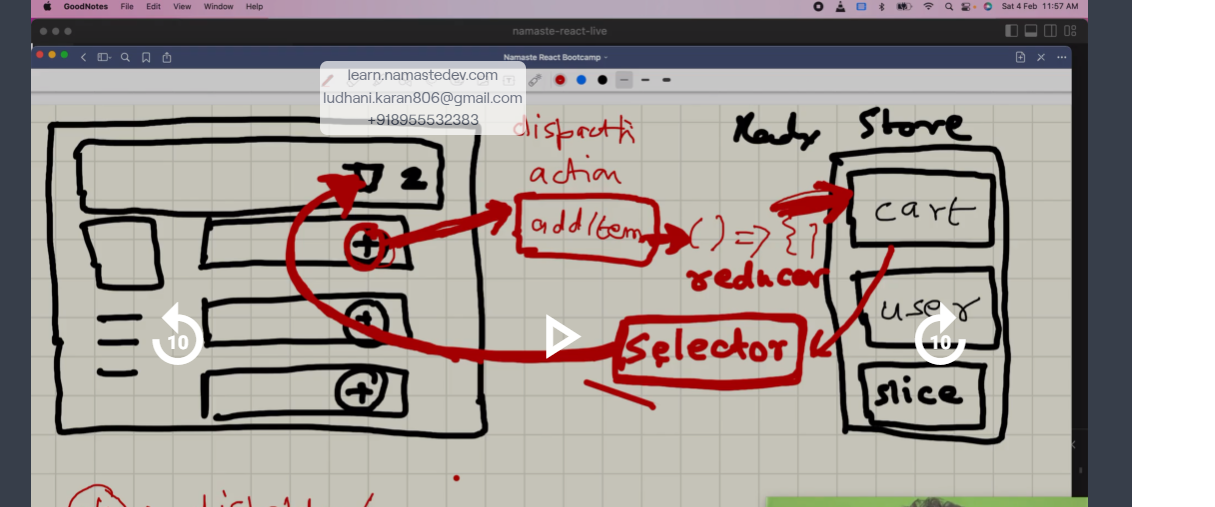 GoodNotes File Edit View Window Help Sat 4 Feb 11:57 AM
namaste-react-live
Namaste React Bootcamp
learn.namastedev.com
ludhani.karan806@gmail.com
+918955532383
dispatch
action
Store
2
cart
addItem
() => {}
reducer
user
selector
slice
10
10